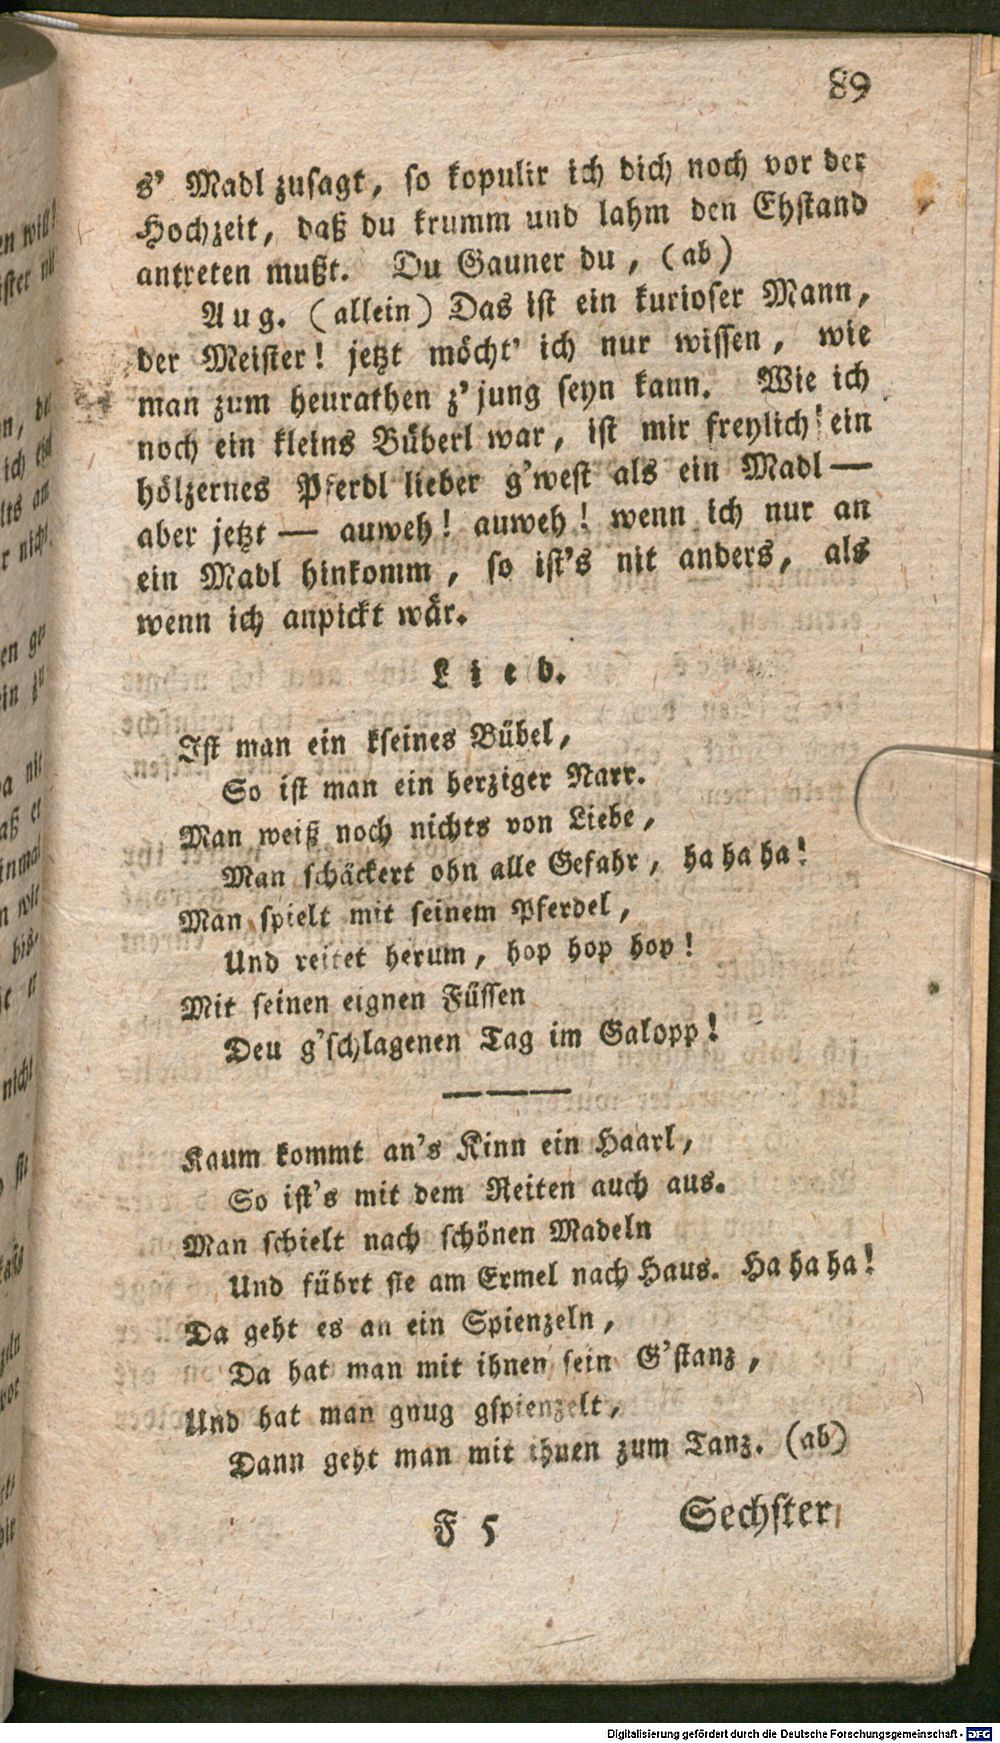 89
s' Madl zusagt, so kopulir ich dich noch vor der
Hochzeit, daß du krumm und lahm den Ehstand
antreten mußt. Du Gauner du, (ab)
Aug. (allein) Das ist ein kurioser Mann,
der Meister! jetzt möcht' ich nur wissen, wie
man zum heurathen z'jung seyn kann. Wie ich
noch ein kleins Büberl war, ist mir freylich ein
hölzernes Pferdl lieber g'west als ein Madl —
aber jetzt — auweh! auweh! wenn ich nur an
ein Madl hinkomm, so ist's nit anders, als
wenn ich anpickt wär.
Lied.
Ist man ein kseines Bübel,
So ist man ein herziger Narr.
Man weiß noch nichts von Liebe,
Man schäckert ohn alle Gefahr, ha ha ha!
Man spielt mit seinem Pferdel,
Und reitet herum, hop hop hop!
Mit seinen eignen Füssen
Deu g'schlagenen Tag im Galopp!
Kaum kommt an's Kinn ein Haarl,
So ist's mit dem Reiten auch aus.
Man schielt nach schönen Madeln
Und führt sie am Ermel nach Haus. Ha ha ha!
Da geht es an ein Spienzeln,
Da hat man mit ihnen sein G'stanz,
Und hat man gnug gspienzelt,
Dann geht man mit ihuen zum Tanz. (ab)
F 5 Sechster
Digitalisierung gefördert durch die Deutsche Forschungsgemeinschaft - DFG